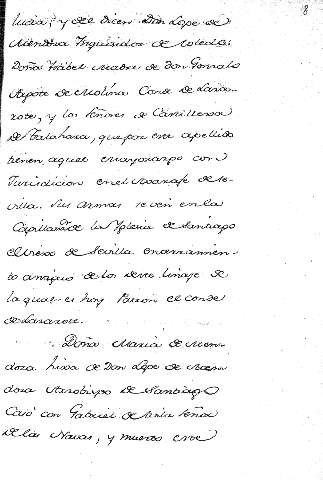 8
lucia? y del Licen. Don Lope de
Mendoza Inquisidor de Toledo.
Doña Isabel Madre de Don Gonzalo
Argote de Molina Conde de Lanza
rote, y los señores de Canillexas
de Talahara, que por este apellido
tienen aquel mayorazgo con
Jurisdicion en el Axarafe de Se
villa. Sus armas se ven en la
Capilla de la Yglesia de Santiago
el viexo de Sevilla, enterramien
to antiguo de los deste linaje de
la qual es hoy Patron el conde
de Lanzarote.
Doña Maria de Men
doza hixa de Don Lope de Men
doza Arzobispo de Santiago
Casó con Gabriel de Señor
de las Navas, y muerto este